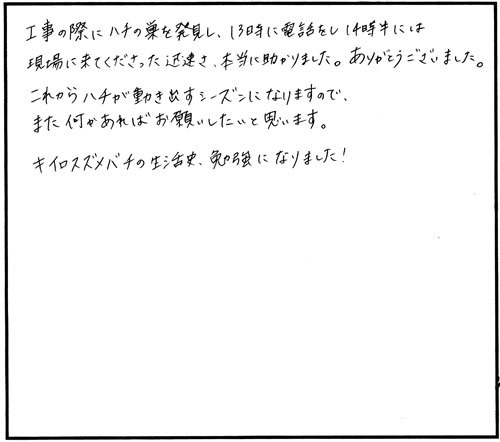 工事の際にハチの巣を発見し、13時に電話をし14時半には
現場に来てくださった迅速さ、本当に助かりました。ありがとうございました。
これからハチが動き出すシーズンになりますので、
また何かあればお願いしたいと思います。
キイロスズメバチの生活史、勉強になりました！